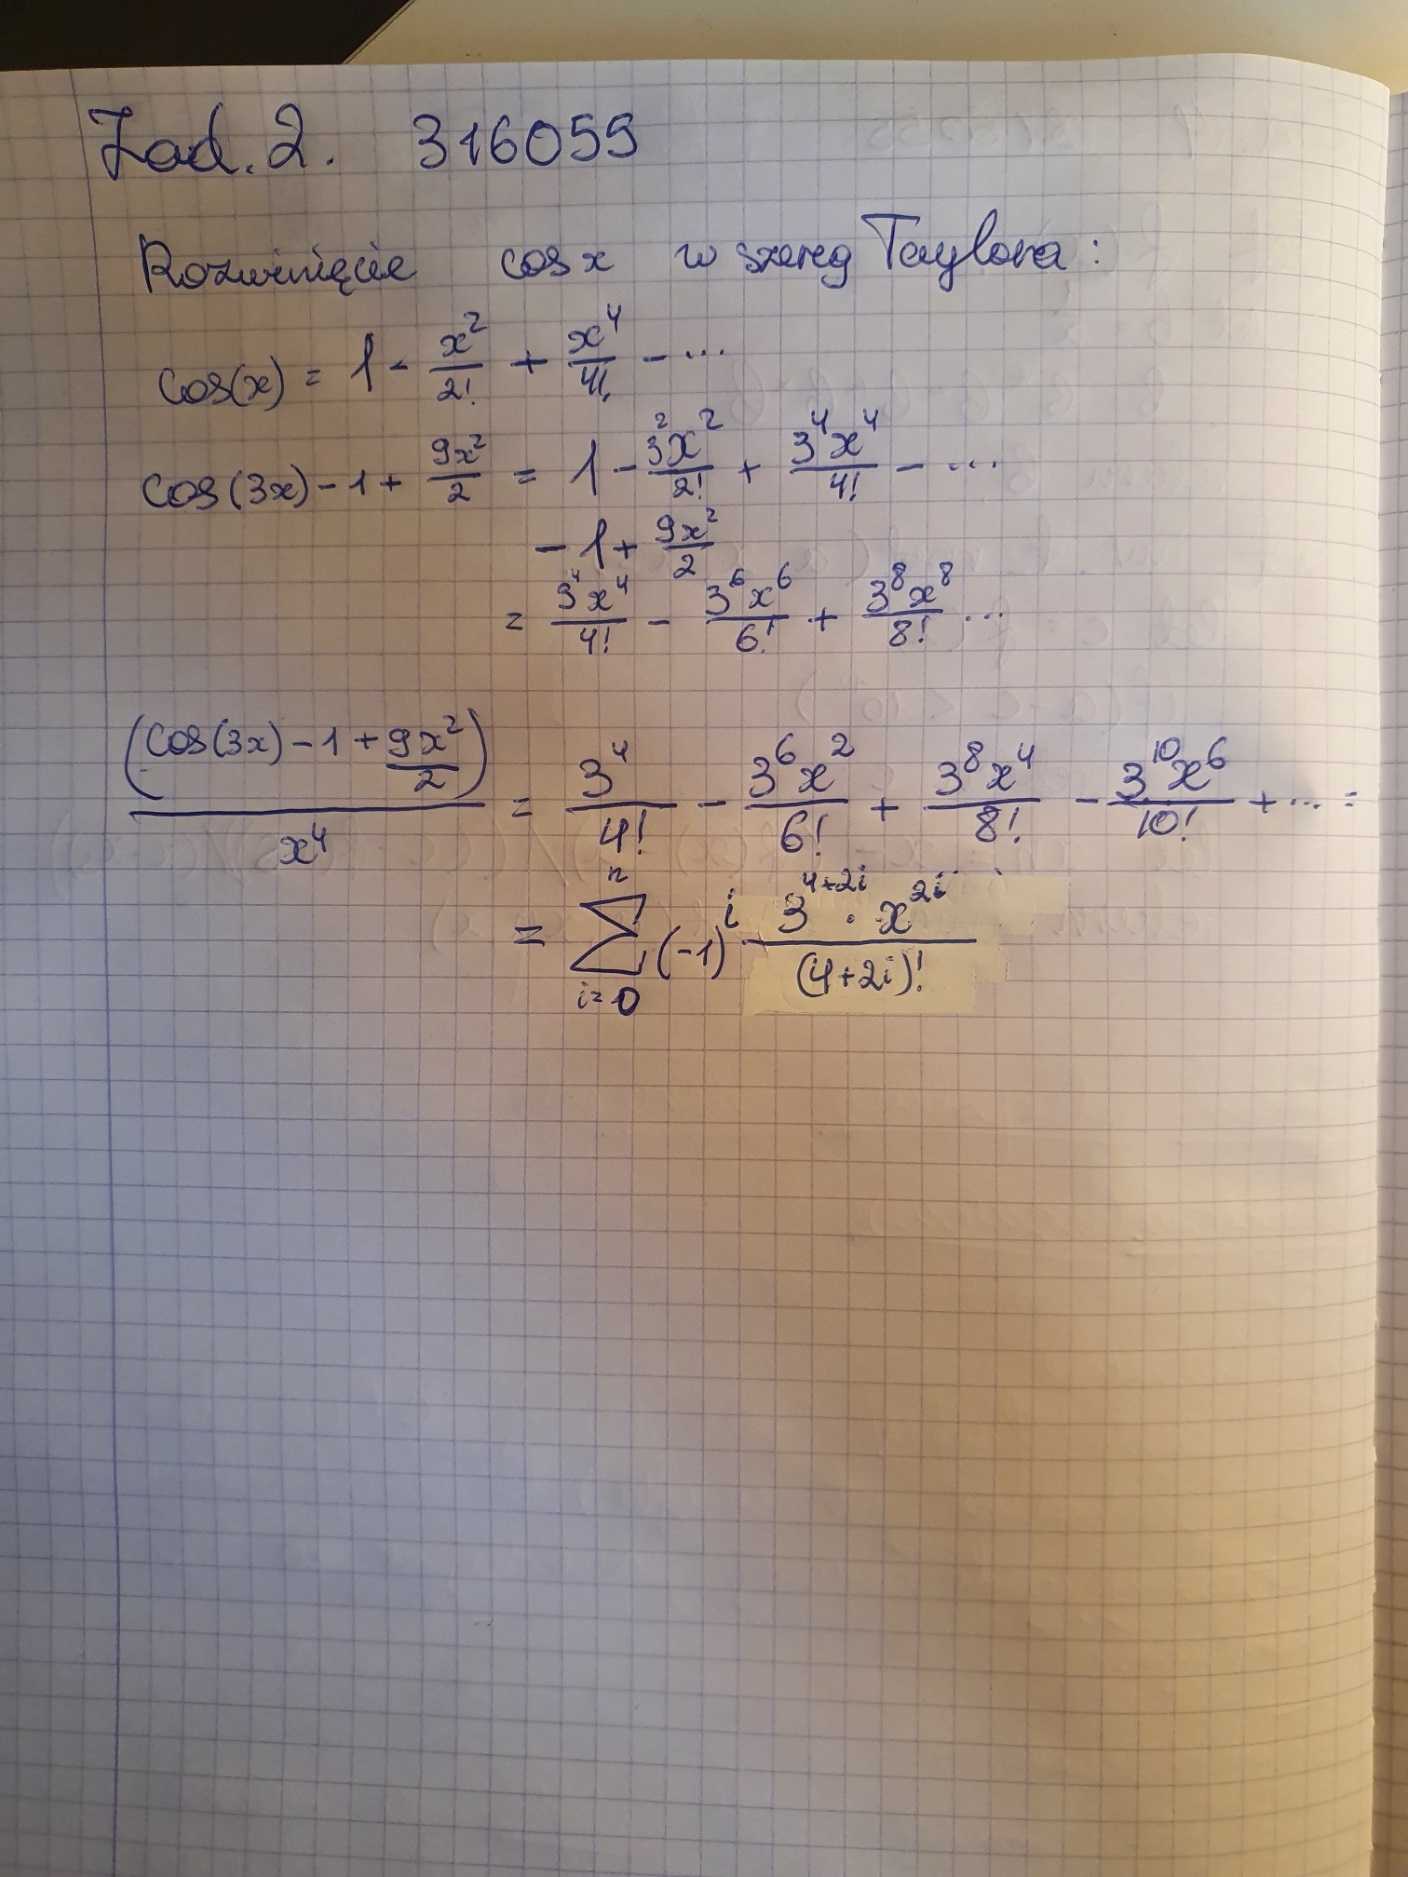 Zad. 2. 316059
Rozwinięcie cos x w szereg Taylora:
cos(x) = 1 - x²/2! + x⁴/4! - ...
cos(3x) - 1 + 9x²/2 = 1 - 3²x²/2! + 3⁴x⁴/4! - ...
- 1 + 9x²/2
= 3⁴x⁴/4! - 3⁶x⁶/6! + 3⁸x⁸/8! ...
(cos(3x) - 1 + 9x²/2)/x⁴ = 3⁴/4! - 3⁶x²/6! + 3⁸x⁴/8! - 3¹⁰x⁶/10! + ... =
= ∑_{i=0}^{n} (-1)^i (3^{4+2i} · x^{2i})/(4+2i)!